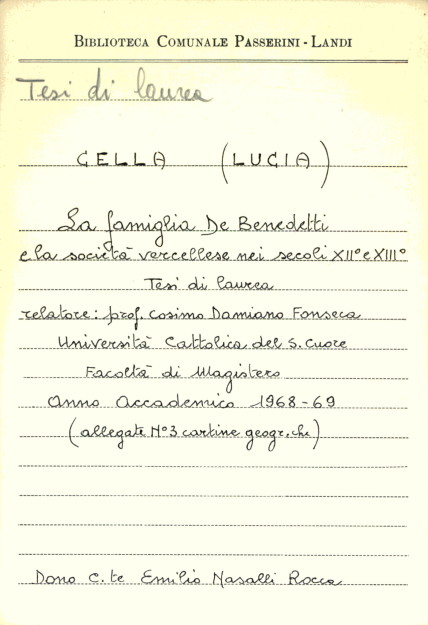 BIBLIOTECA COMUNALE PASSERINI - LANDI
Tesi di laurea
CELLA (LUCIA)
La famiglia De Benedetti
e la società vercellese nei secoli XII° e XIII°
Tesi di laurea
relatore: prof. Cosimo Damiano Fonseca
Università Cattolica del S. Cuore
Facoltà di Magistero
Anno Accademico 1968-69
(allegate N°3 cartine geogr.che)
Dono C.te Emilio Nasalli Rocca